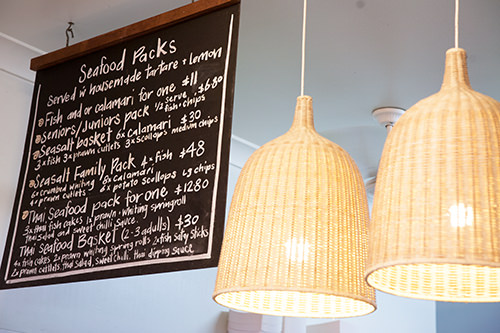 Seafood Packs
Served w housemade tartare + lemon
Fish and/or calamari for one $11
Seniors/Juniors pack 1/2 serve fish + chips $6.80
Seasalt basket 6x calamari $30
3x fish 3x prawn cutlets 3x scollops medium chips
Seasalt Family Pack 4x fish $48
6x crumbed whiting 8x calamari
4x prawn cutlets 6x potato scollops Lg chips
Thai Seafood pack for one $12.80
2x Thai fish cakes 1x prawn + whiting springroll
Thai salad and sweet chilli sauce
Thai Seafood Basket (2-3 adults) $30
4x fish cakes 2x prawn whiting spring rolls 2x fish satay sticks
2x prawn cutlets thai salad, sweet chilli, thai dipping sauce